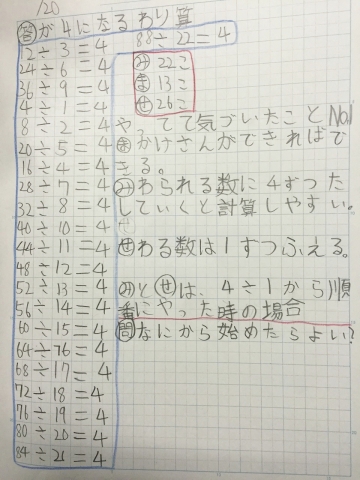 1/20
答が4になるわり算
12÷3=4
24÷6=4
36÷9=4
4÷1=4
8÷2=4
20÷5=4
16÷4=4
28÷7=4
32÷8=4
40÷10=4
44÷11=4
48÷12=4
52÷13=4
56÷14=4
60÷15=4
64÷16=4
68÷17=4
72÷18=4
76÷19=4
80÷20=4
84÷21=4
88÷22=4
み 22こ
ま 13こ
せ 26こ
やってて気づいたことNo.1
かけざんができればで
きる。
み わられる数に4ずつた
していくと計算しやすい。
せ わる数は1ずつふえる。
みとせは、4÷1から順
番にやった時の場合
問 なにから始めたらよい?